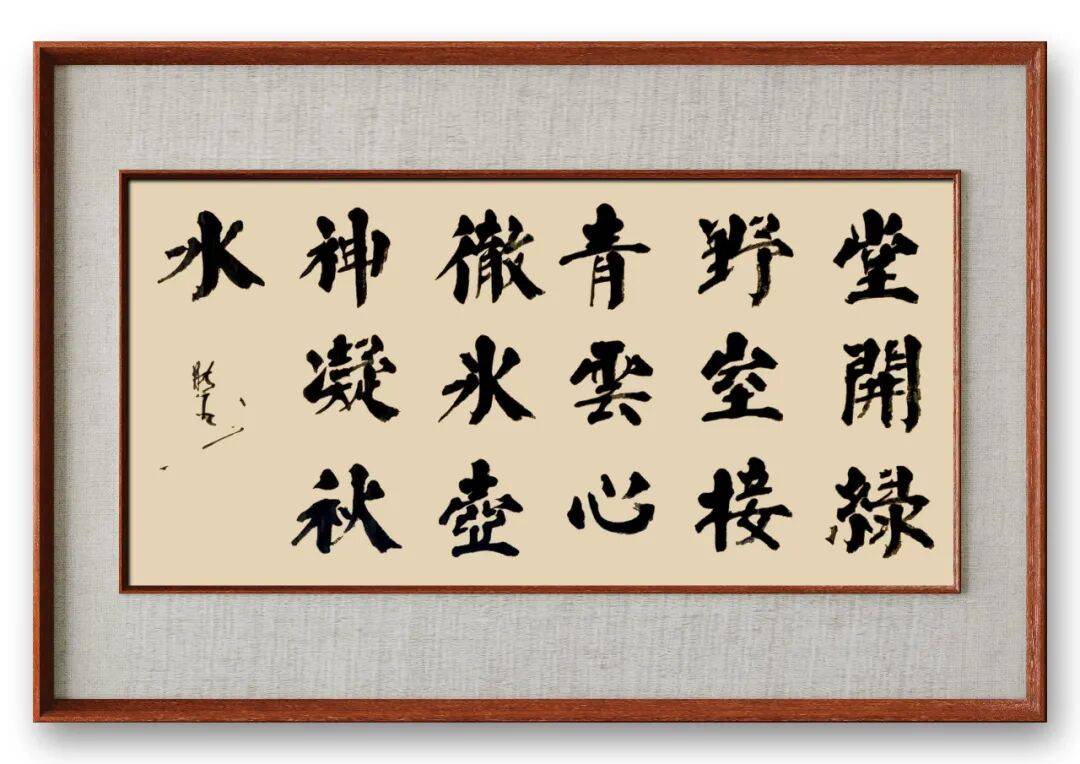 堂開緑
野室接
青雲心
徹氷壺
神凝秋
水